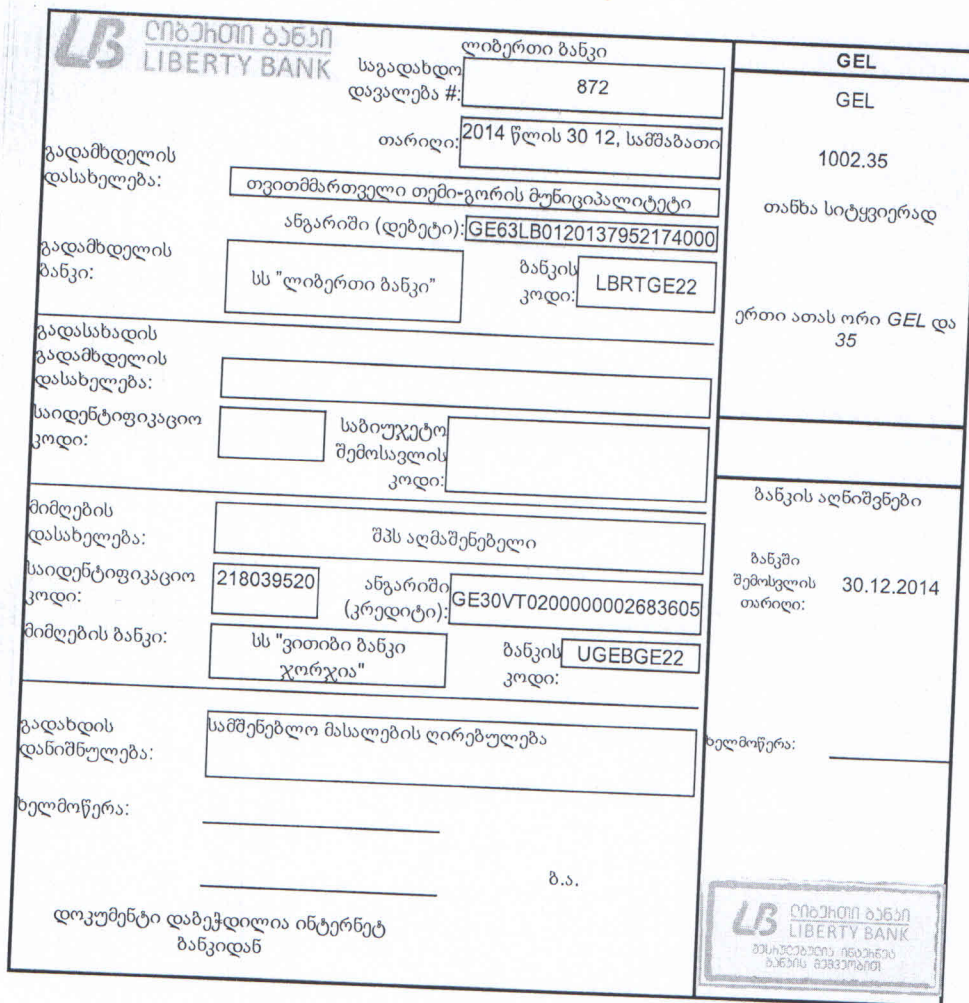 LB ლიბერთი ბანკი
LIBERTY BANK
ლიბერთი ბანკი
საგადახდო
დავალება #:
872
თარიღი:
2014 წლის 30 12, სამშაბათი
გადამხდელის
დასახელება:
თვითმმართველი თემი-გორის მუნიციპალიტეტი
ანგარიში (დებეტი):
GE63LB0120137952174000
გადამხდელის
ბანკი:
სს "ლიბერთი ბანკი"
ბანკის
კოდი:
LBRTGE22
გადასახადის
გადამხდელის
დასახელება:
საიდენტიფიკაციო
კოდი:
საბიუჯეტო
შემოსავლის
კოდი:
მიმღების
დასახელება:
შპს აღმაშენებელი
საიდენტიფიკაციო
კოდი:
218039520
ანგარიში
(კრედიტი):
GE30VT0200000002683605
მიმღების ბანკი:
სს "ვითიბი ბანკი
ჯორჯია"
ბანკის
კოდი:
UGEBGE22
გადახდის
დანიშნულება:
სამშენებლო მასალების ღირებულება
ხელმოწერა:
ბ.ა.
დოკუმენტი დაბეჭდილია ინტერნეტ
ბანკიდან
GEL
GEL
1002.35
თანხა სიტყვიერად
ერთი ათას ორი GEL და
35
ბანკის აღნიშვნები
ბანკში
შემოსვლის
თარიღი:
30.12.2014
ხელმოწერა:
LB ლიბერთი ბანკი
LIBERTY BANK
შესრულებულია ინტერნეტ
ბანკის მეშვეობით